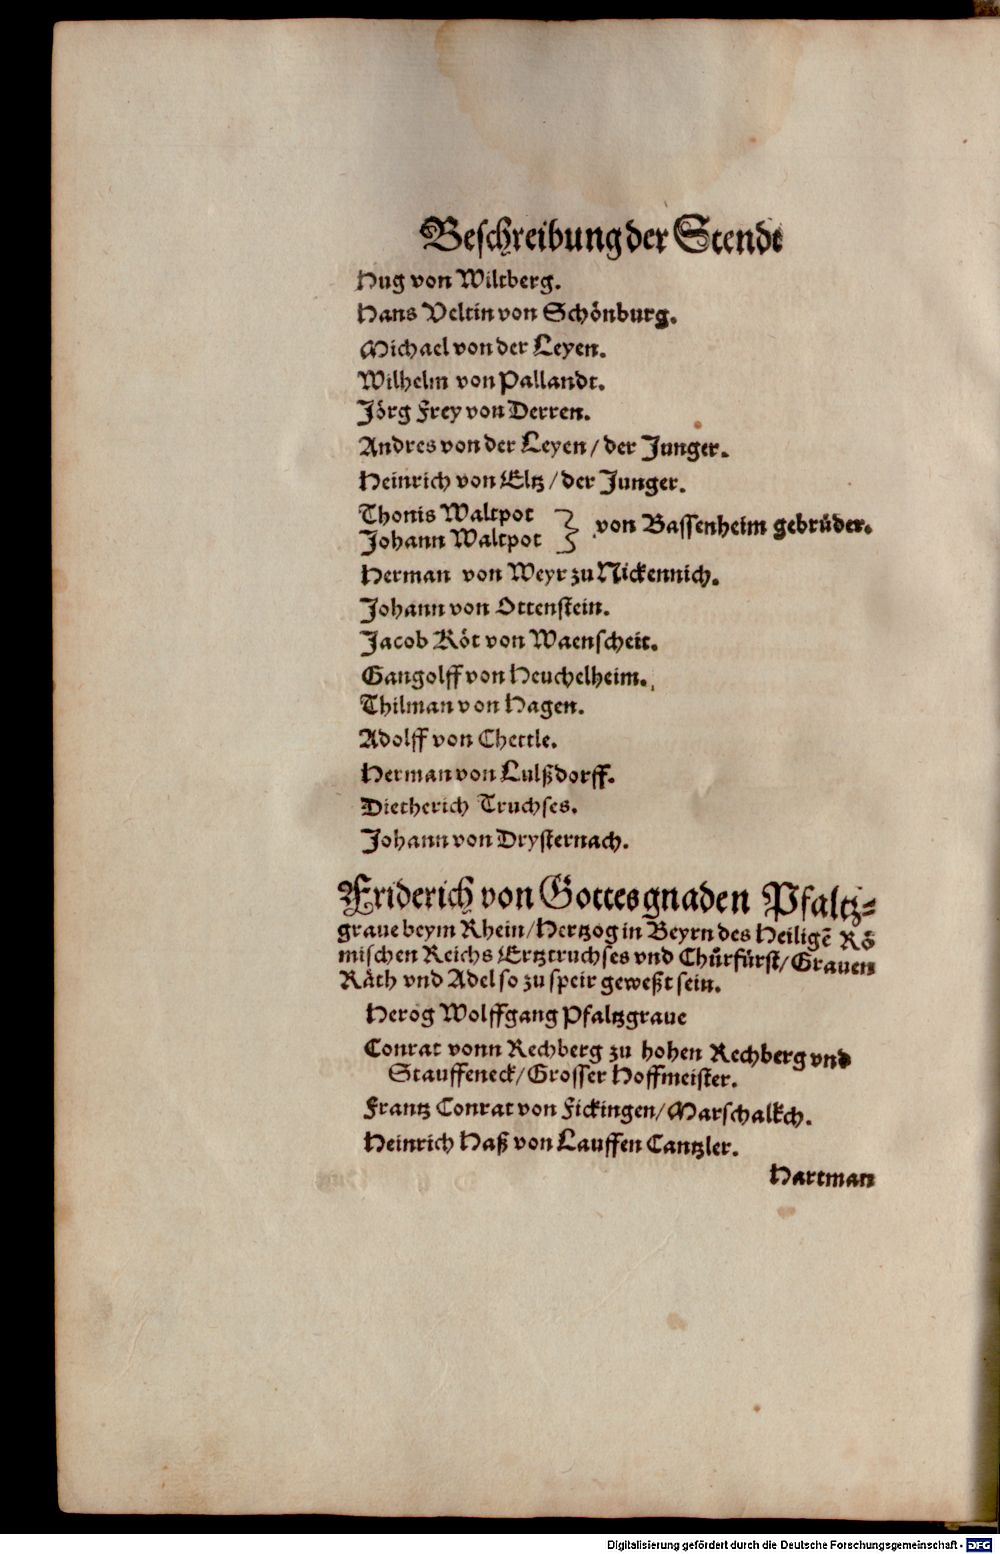 Beschreibung der Stende
Hug von Wiltberg.
Hans Veltin von Schönburg.
Michael von der Leyen.
Wilhelm von Pallandt.
Jörg Frey von Derren.
Andres von der Leyen / der Junger.
Heinrich von Eltz / der Junger.
Thonis Waltpot
Johann Waltpot } von Bassenheim gebrüder.
Herman von Weyr zu Nickennich.
Johann von Ottenstein.
Jacob Röt von Waenscheit.
Gangolff von Heuchelheim.
Thilman von Hagen.
Adolff von Chettle.
Herman von Lulßdorff.
Dietherich Truchses.
Johann von Drysternach.
Friderich von Gottes gnaden Pfaltz-
graue beym Rhein / Hertzog in Beyrn des Heiligẽ Rö
mischen Reichs Ertztruchses vnd Chůrfürst / Grauen
Räth vnd Adel so zu speir geweßt sein.
Herog Wolffgang Pfaltzgraue
Conrat vonn Rechberg zu hohen Rechberg vnd
Stauffeneck / Grosser Hoffmeister.
Frantz Conrat von Fickingen / Marschalkch.
Heinrich Haß von Lauffen Cantzler.
Hartman
Digitalisierung gefördert durch die Deutsche Forschungsgemeinschaft - DFG